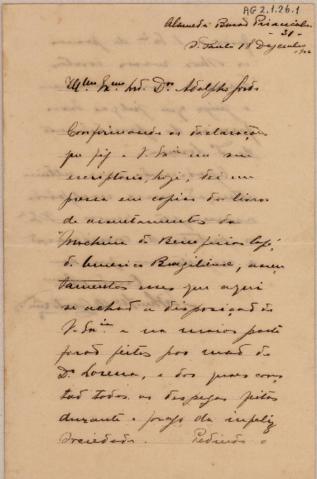 AG 2.1.26.1
Alameda Barão Piracicaba
- 31 -
S. Paulo 18 Dezembro
Dr. Adolpho Gordo
Confirmando as declarações
que fiz a V. Sa. em seu
escriptorio, hoje, dei em
em copias do livro
de assentamentos da
Machina de Beneficiar Café,
de Americo Braziliense, assen
tamentos esses que aqui
se achão a disposição de
V. Sa. e na maior parte
forão feitos por mão do
Dr. Lorena, e dos quaes cons
tão todas as despezas feitas
durante o prazo da infeliz
sociedade. Pedindo o